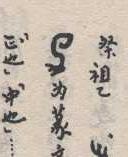 祭祖乙
为篆文
正也”“中也”……